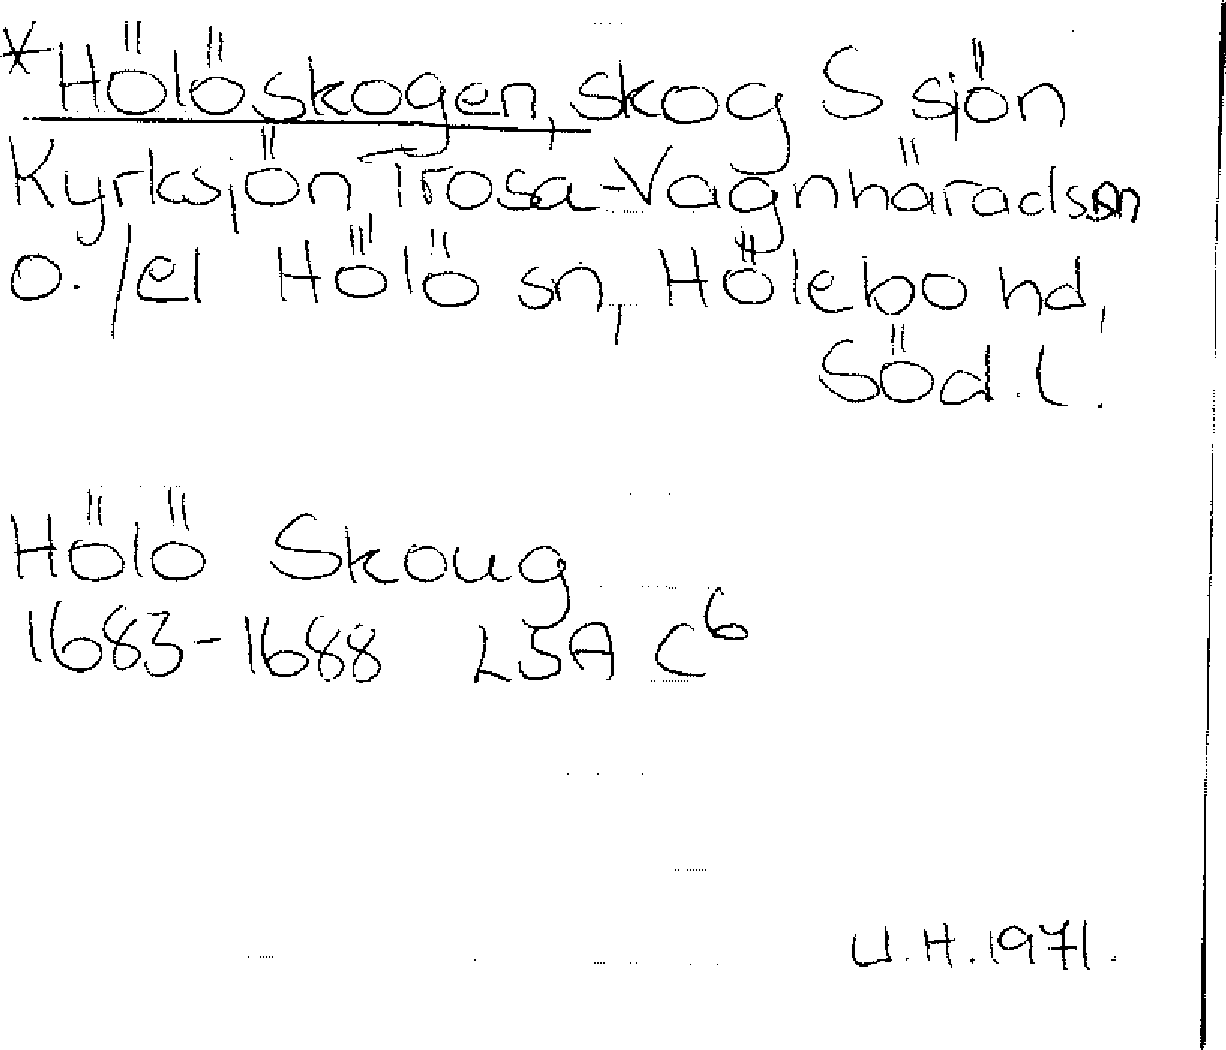 *Hölöskogen, skog S sjön
Kyrksjön Trosa-Vagnhärads sn
o./el Hölö sn, Hölebo hd,
Söd. l.
Hölö Skoug
1683-1688 LSA C⁶
U.H. 1971.